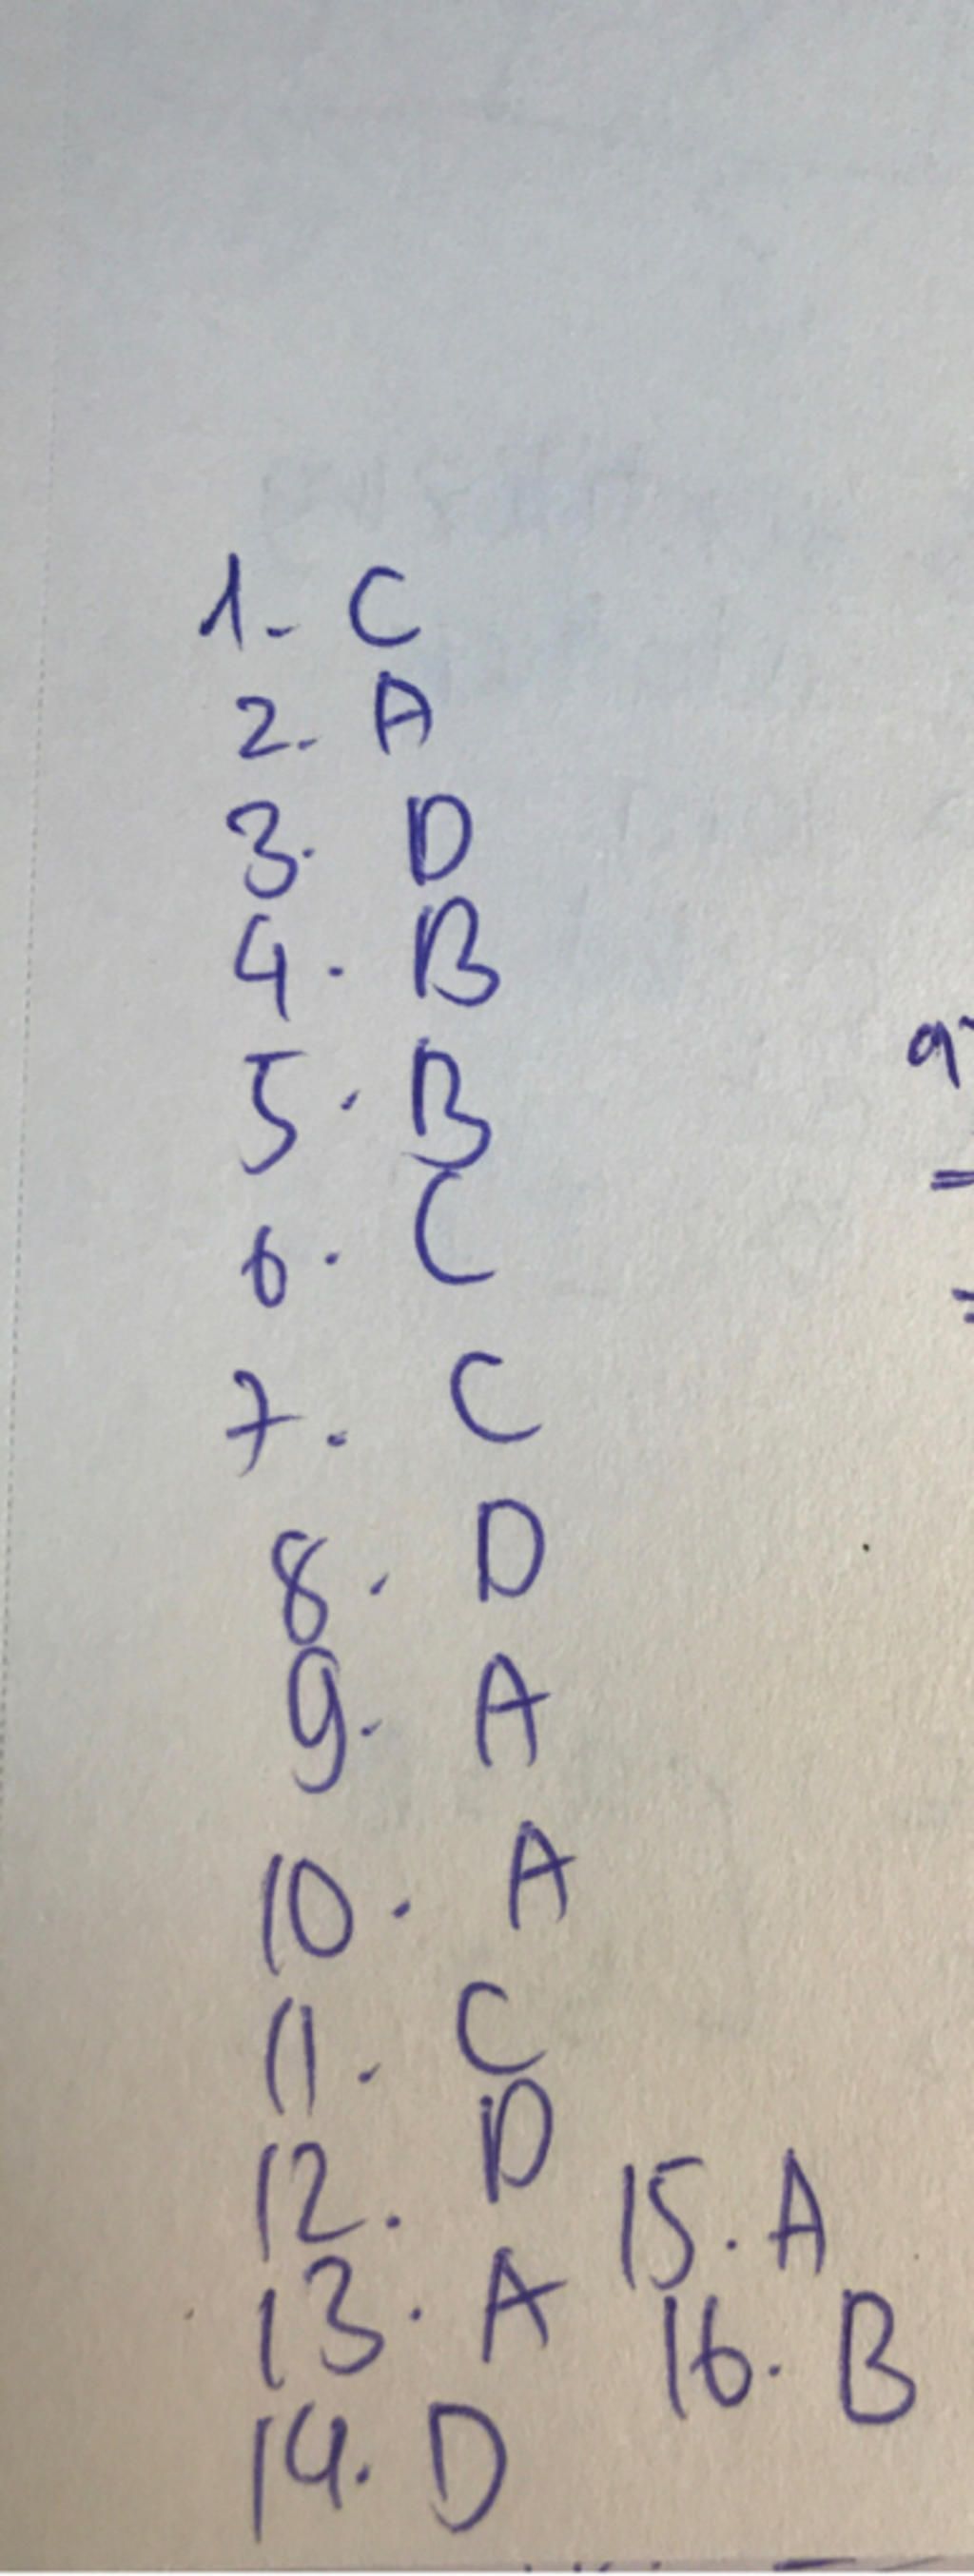 1. C
2. A
3. D
4. B
5. B
6. C
7. C
8. D
9. A
10. A
11. C
12. D
13. A
14. D
15. A
16. B